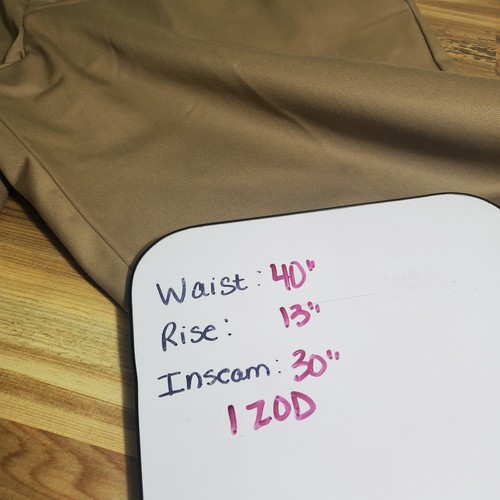 Waist: 40"
Rise: 13"
Inseam: 30"
IZOD